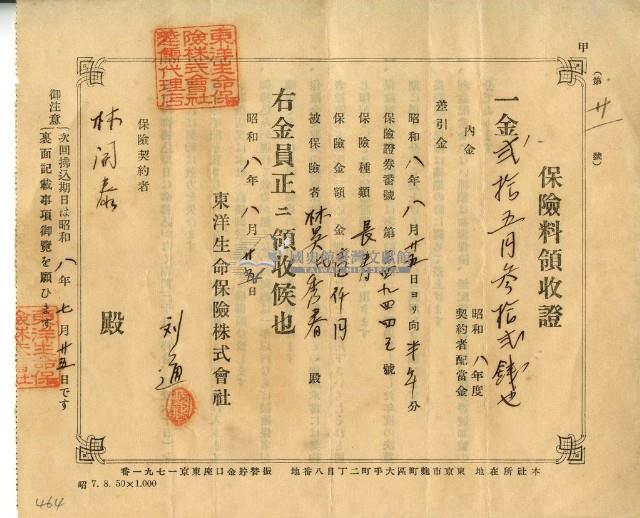 甲
(第廿一號)
保險料領收證
一金貳拾五円參拾貳錢也
內金
昭和八年度
契約者配當金
差引金
昭和八年八月廿五日ヨリ向半年分
保險證券番號 第 四四五號
保險種類 長壽
保險金額 金 仟円
被保險者 林吳氏秀春 殿
右金員正ニ領收候也
昭和八年八月廿五日
東洋生命保險株式會社
刘通
保險契約者
林開泰
殿
御注意
次回拂込期日は昭和八年七月廿五日です
裏面記載事項御覽を願ひます
東洋生命保險株式會社
代理店
國史館臺灣文獻館
TAIWAN HISTORICA
本社所在地 東京市麴町區大手町二丁目八番地 振替貯金口座東京一七九一番
昭 7. 8. 50×1.000
464